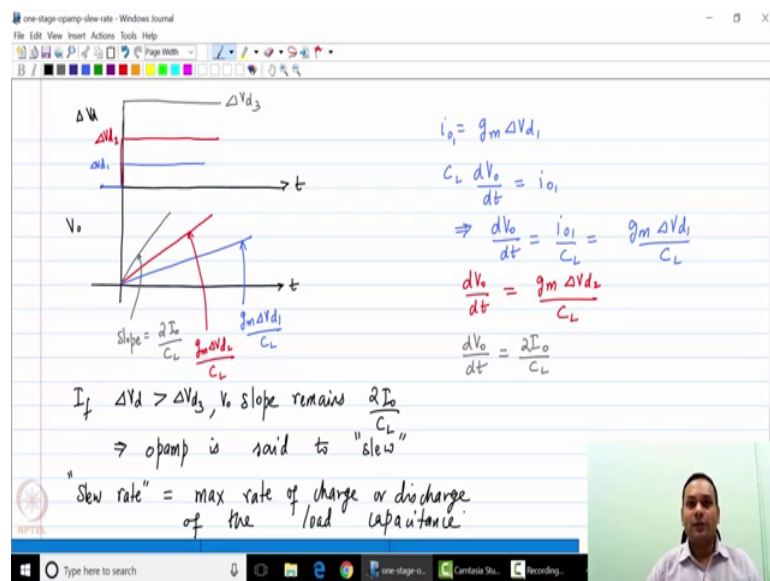 one-stage-opamp-slew-rate - Windows Journal
File Edit View Insert Actions Tools Help
Page Width
B I
ΔVd
ΔVd3
ΔVd2
ΔVd1
t
V₀
t
slope = 2I₀/C_L
gmΔVd2/C_L
gmΔVd1/C_L
i₀₁ = gm ΔVd1
C_L dV₀/dt = i₀₁
⇒ dV₀/dt = i₀₁/C_L = gm ΔVd1/C_L
dV₀/dt = gm ΔVd2/C_L
dV₀/dt = 2I₀/C_L
If ΔVd > ΔVd3, V₀ slope remains 2I₀/C_L
⇒ opamp is said to "slew"
"Slew rate" = max rate of charge or discharge
of the load capacitance.
NPTEL
Type here to search
one-stage-o...
Camtasia Stu...
Recording...